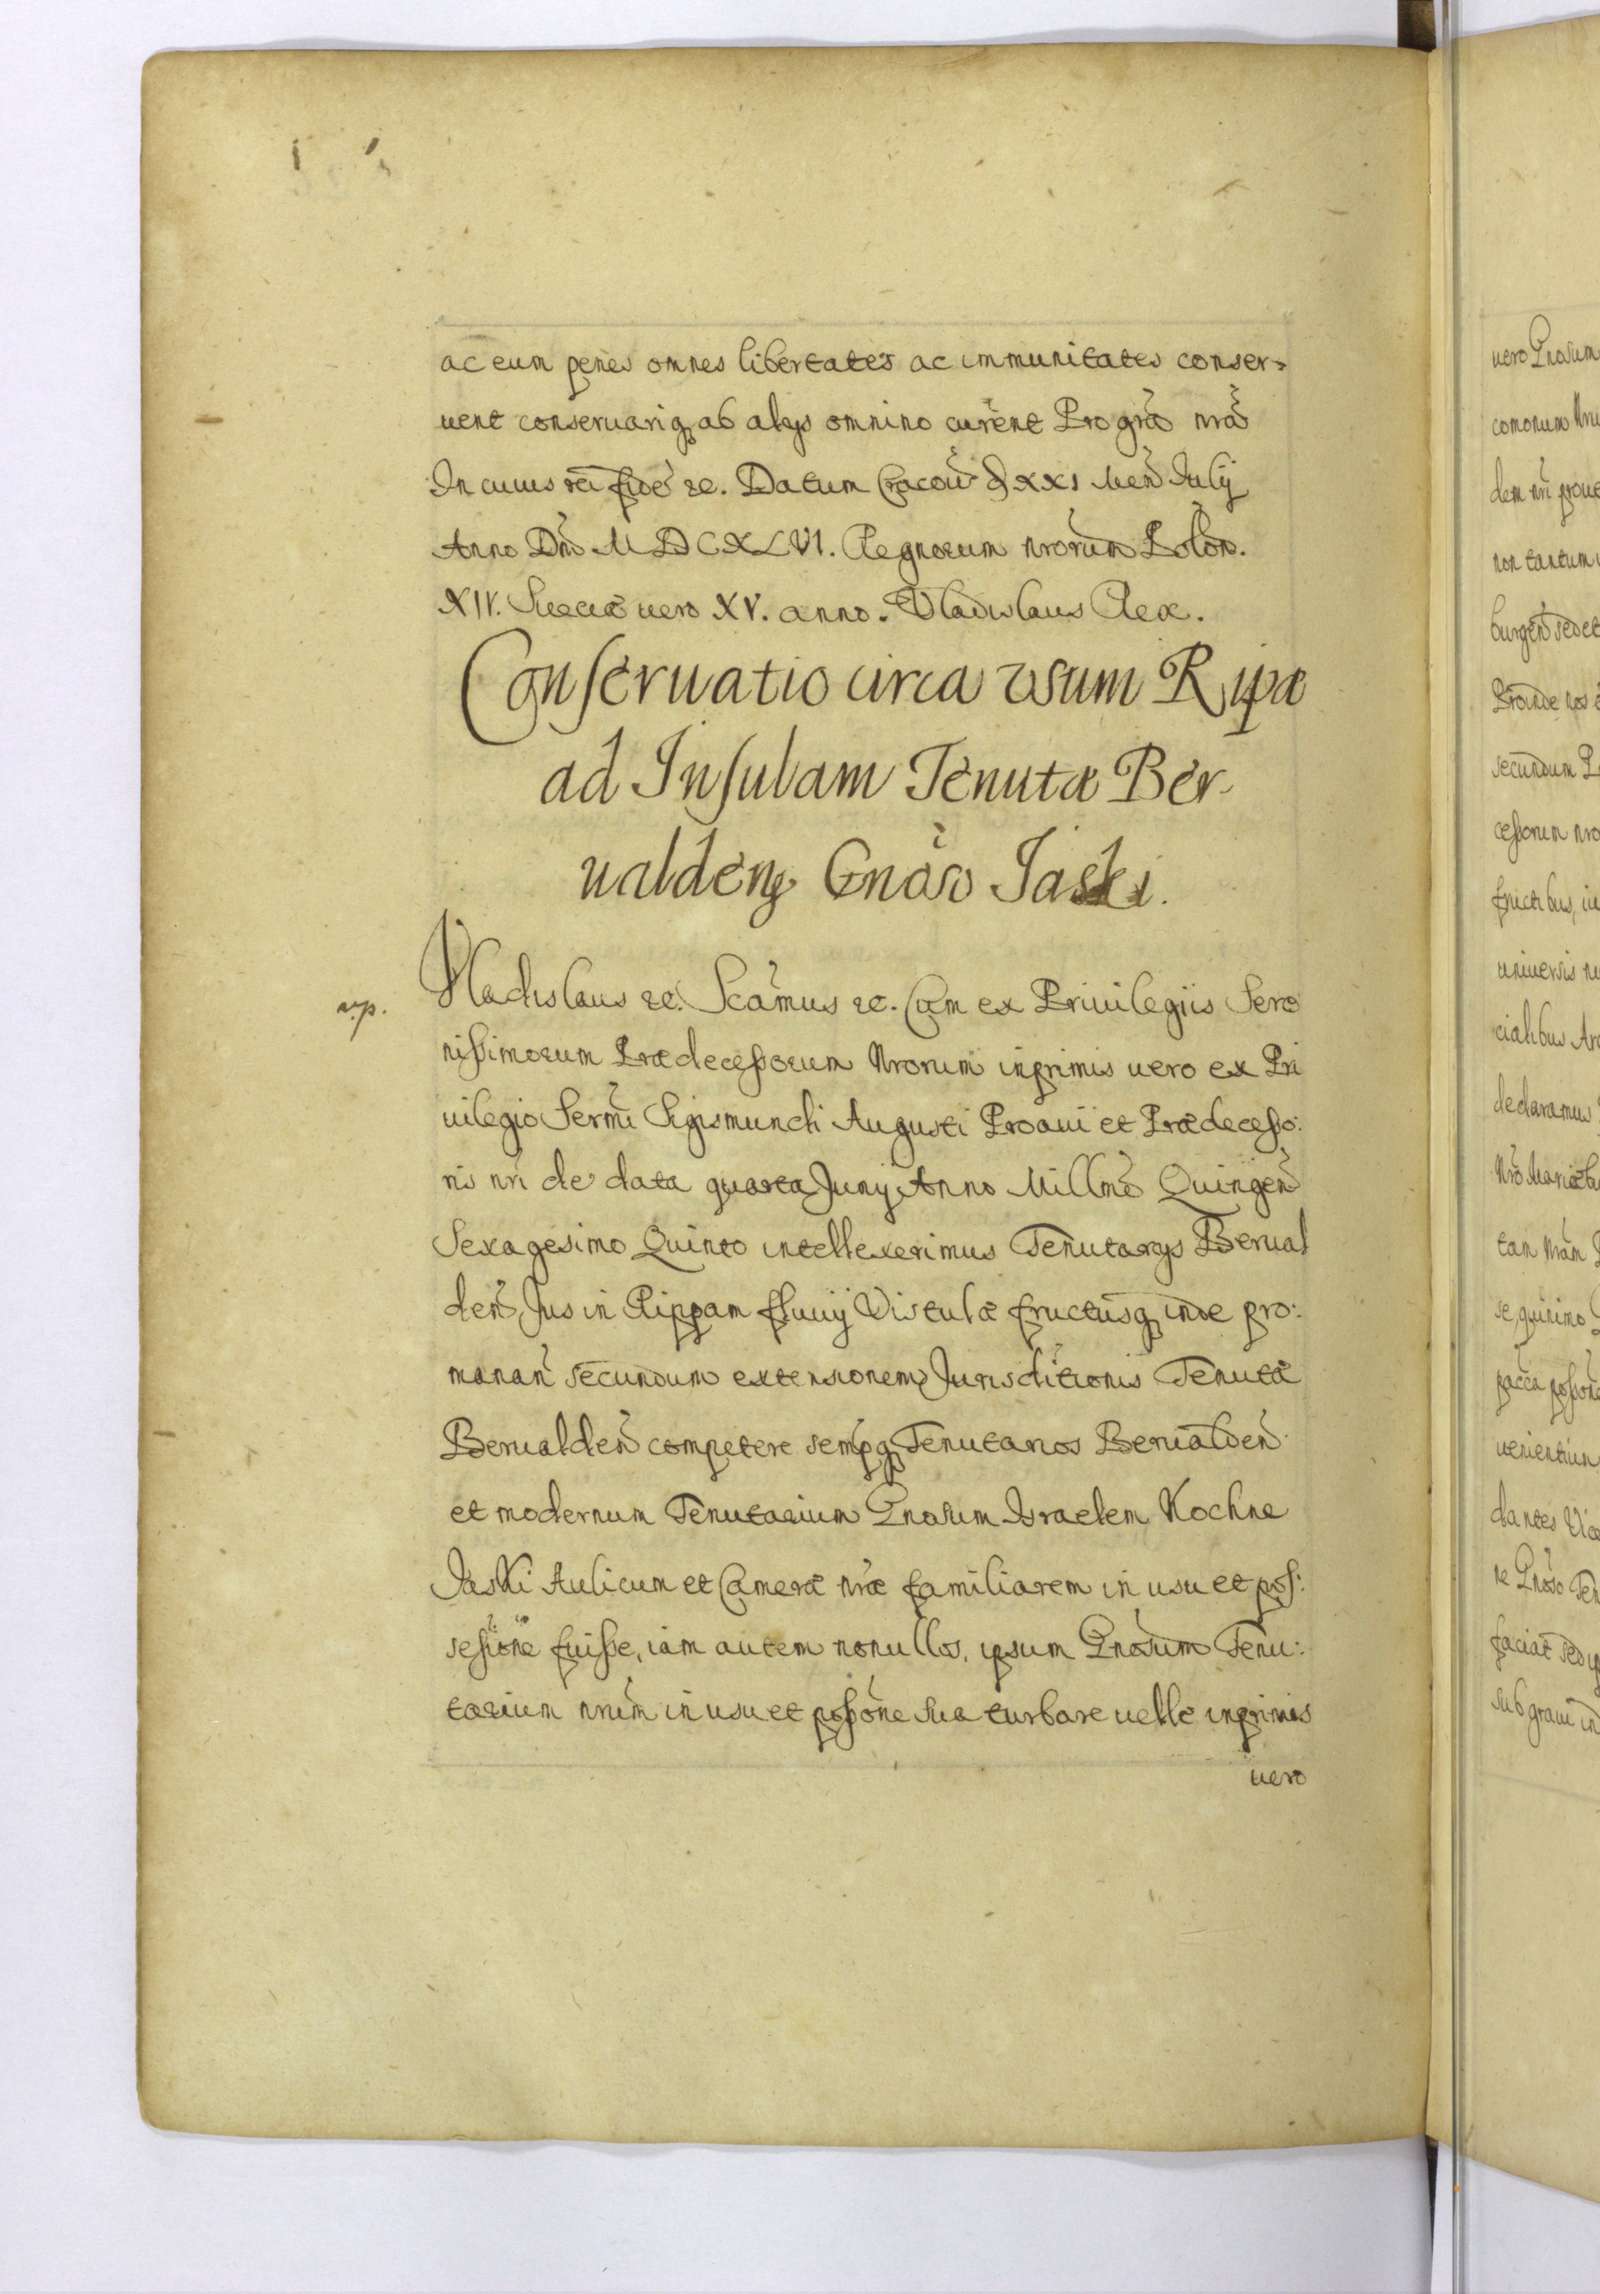 ac eum penes omnes libertates ac immunitates conser=
uent conseruariq ab alijs omnino curent Pro gra nra
In cuius rei fide ec. Datum Cracou d XXI Men Julij
Anno Dni MDCXLVI. Regnorum nrorum Polon.
XIV. Sueciæ uero XV. anno. Vladislaus Rex.
Conseruatio circa vsum Ripæ
ad Insulam Tenutæ Ber-
ualden Gnoso Jaski.
r.p.
Vladislaus ec. Scamus ec. Cum ex Priuilegiis Sere
nissimorum Prædecessorum Nrorum inprimis uero ex Pri
uilegio Sermi Sigismundi Augusti Proaui et Prædecesso:
ris nri de data quarta Junij Anno Millmo Quingen
Sexagesimo Quinto intellexerimus Tenutarijs Berual
den Jus in Rippam fluuij Vistulæ fructusq inde pro:
manan secundum extensionem Jurisditionis Tenutæ
Berualden competere sempq Tenutarios Berualden
et modernum Tenutarium Gnosum Israelem Kochne
Jaski Aulicum et Cameræ nræ familiarem in usu et pos:
sessione fuisse, iam autem nonullos, ipsum Gnosum Tenu:
tarium nrum in usu et possone sua turbare uelle inprimis
uero
uero Gnosum
dem nri
non tantum
burgen sed et
Proinde nos
secundum
cessorum nro
fructibus,
uniuersis
cialibus
declaramus
tam nram
se, quinimo
dantes
ne Gnoso Ten
faciat sed
sub graui